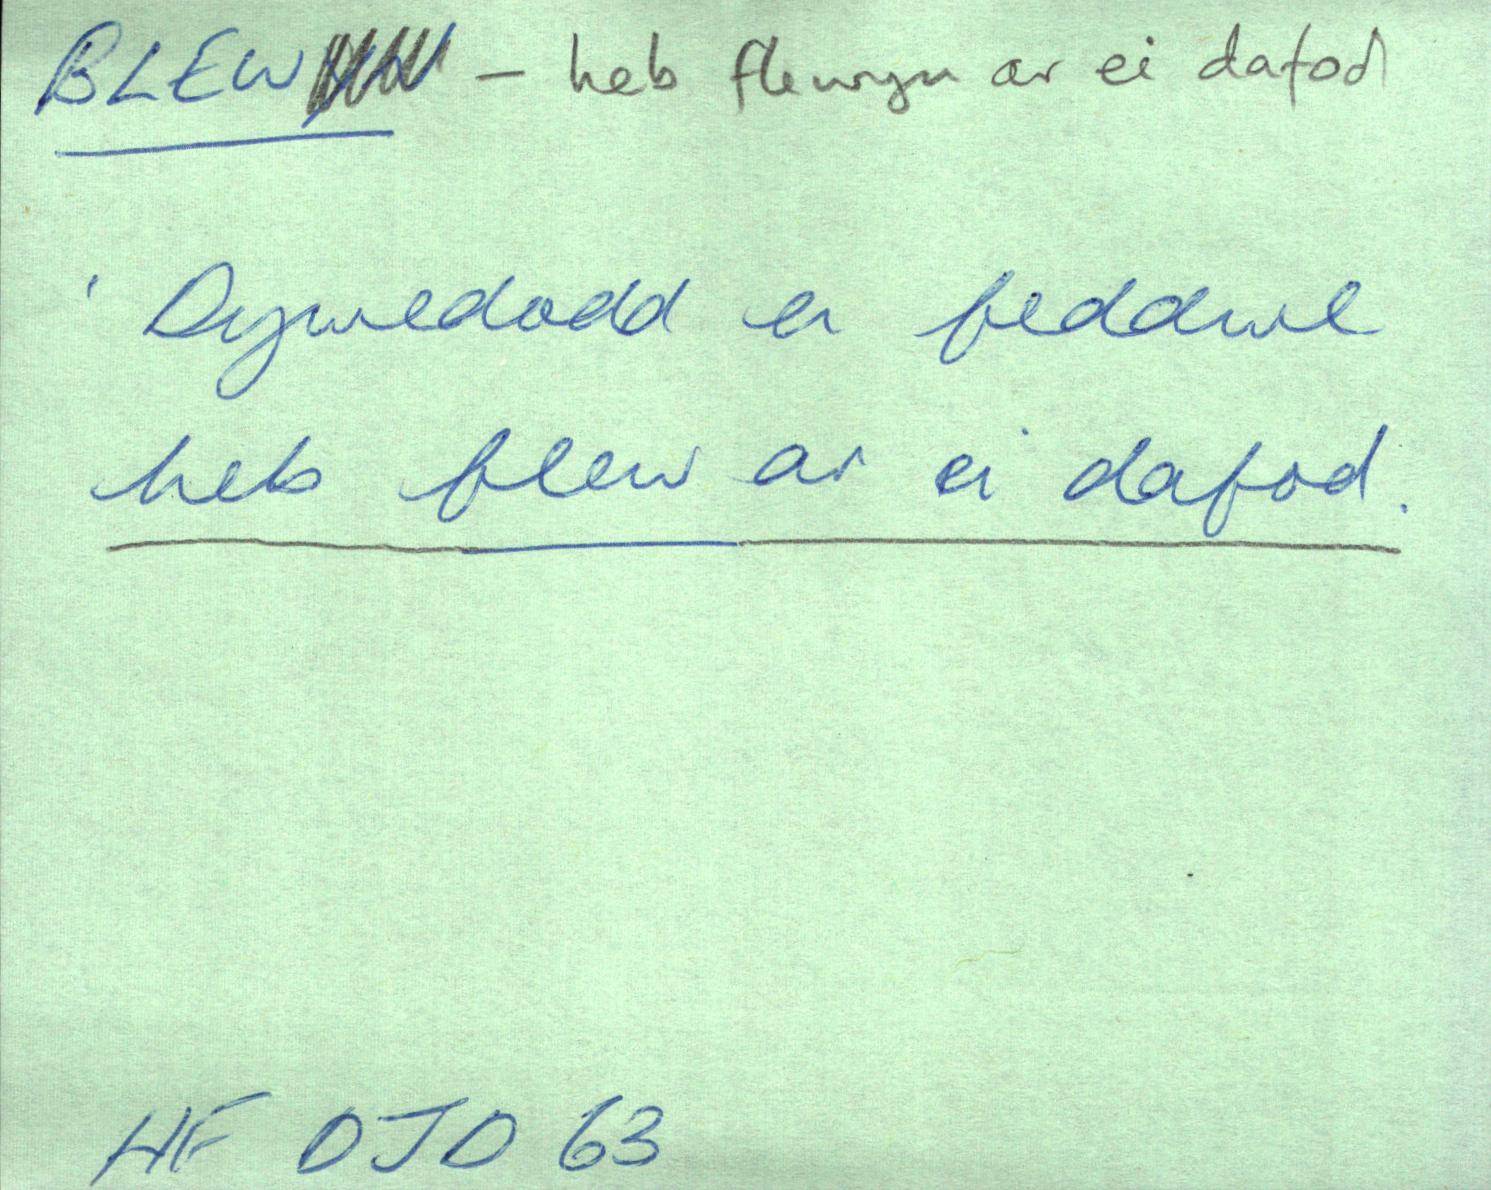 BLEW – heb flewyn ar ei dafod
' Dywedodd ei feddwl
heb flew ar ei dafod.
HF DJD 63